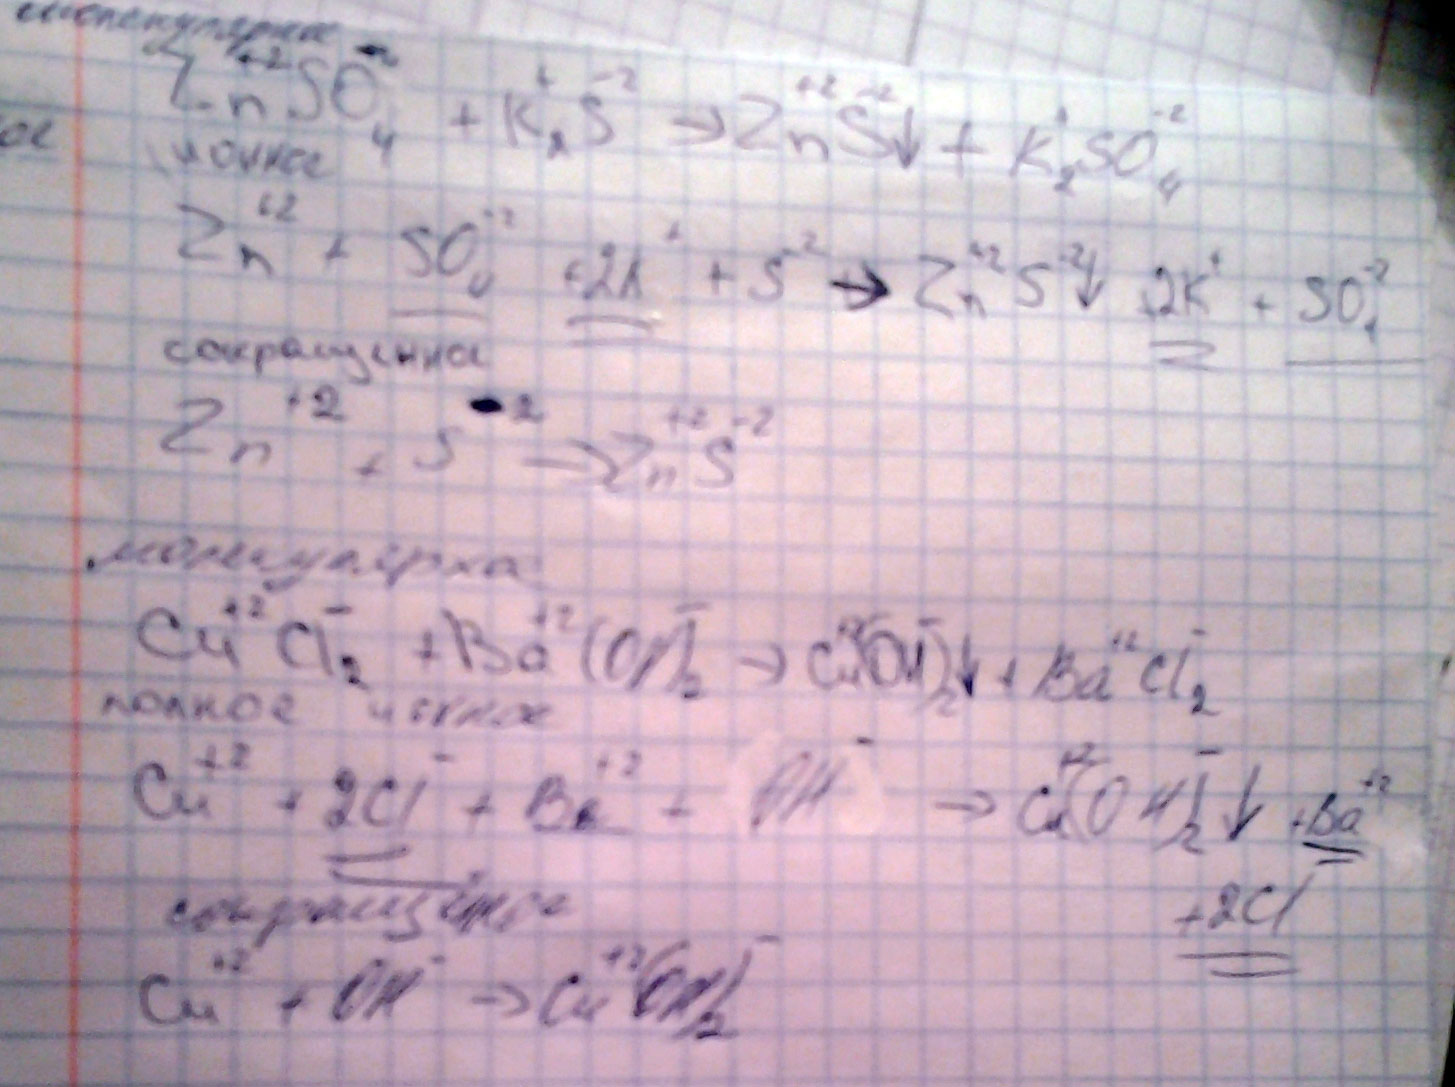 молекулярное
Zn⁺²SO₄⁻² + K₂⁺S⁻² → Zn⁺²S⁻²↓ + K₂⁺SO₄⁻²
ионное
Zn⁺² + SO₄⁻² +2K⁺ + S⁻² → Zn⁺²S⁻²↓ 2K⁺ + SO₄⁻²
сокращенное
Zn⁺² + S⁻² → Zn⁺²S⁻²
Cu⁺²Cl₂⁻ + Ba⁺²(OH)₂⁻ → Cu⁺²(OH)₂⁻↓ + Ba⁺²Cl₂⁻
полное ионное
Cu⁺² + 2Cl⁻ + Ba⁺² + OH⁻ → Cu⁺²(OH)₂⁻↓ +Ba⁺²
+2Cl
сокращённое
Cu⁺² + OH⁻ → Cu⁺²(OH)₂⁻